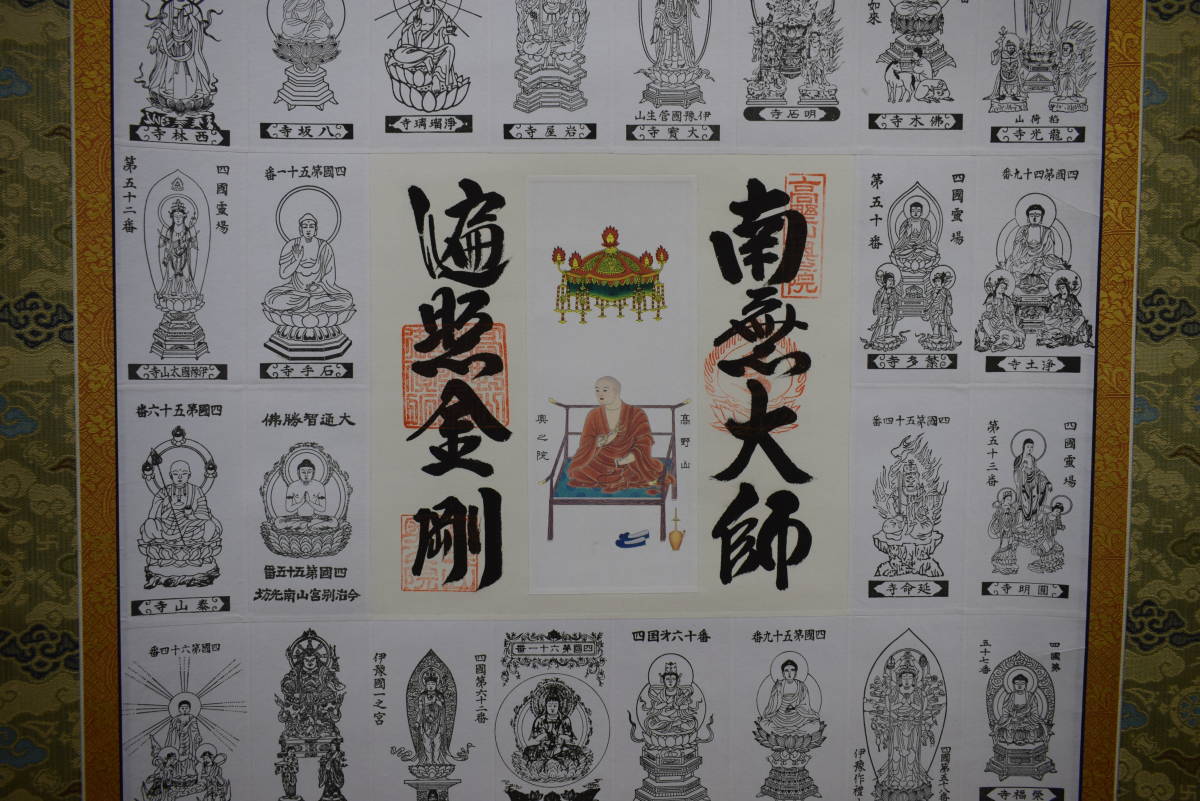 如來
西林寺
八坂寺
淨瑠璃寺
岩屋寺
伊豫國菅生山
大寶寺
明石寺
佛木寺
稻荷山
龍光寺
四國靈場
第五十二番
伊豫國太山寺
四國第五十一番
石手寺
南無大師
遍照金剛
高野山
奥之院
四國靈場
第五十番
繁多寺
四國第四十九番
淨土寺
四國第五十六番
泰山寺
大通智勝佛
四國第五十五番
今治別宮山南光坊
四國第五十四番
延命寺
四國靈場
第五十三番
圓明寺
四國第六十四番
四國第六十二番
伊豫國一之宮
四國第六十一番
四国才六十番
四國第五十九番
四國第五十八番
伊豫作禮
四國第
五十七番
榮福寺